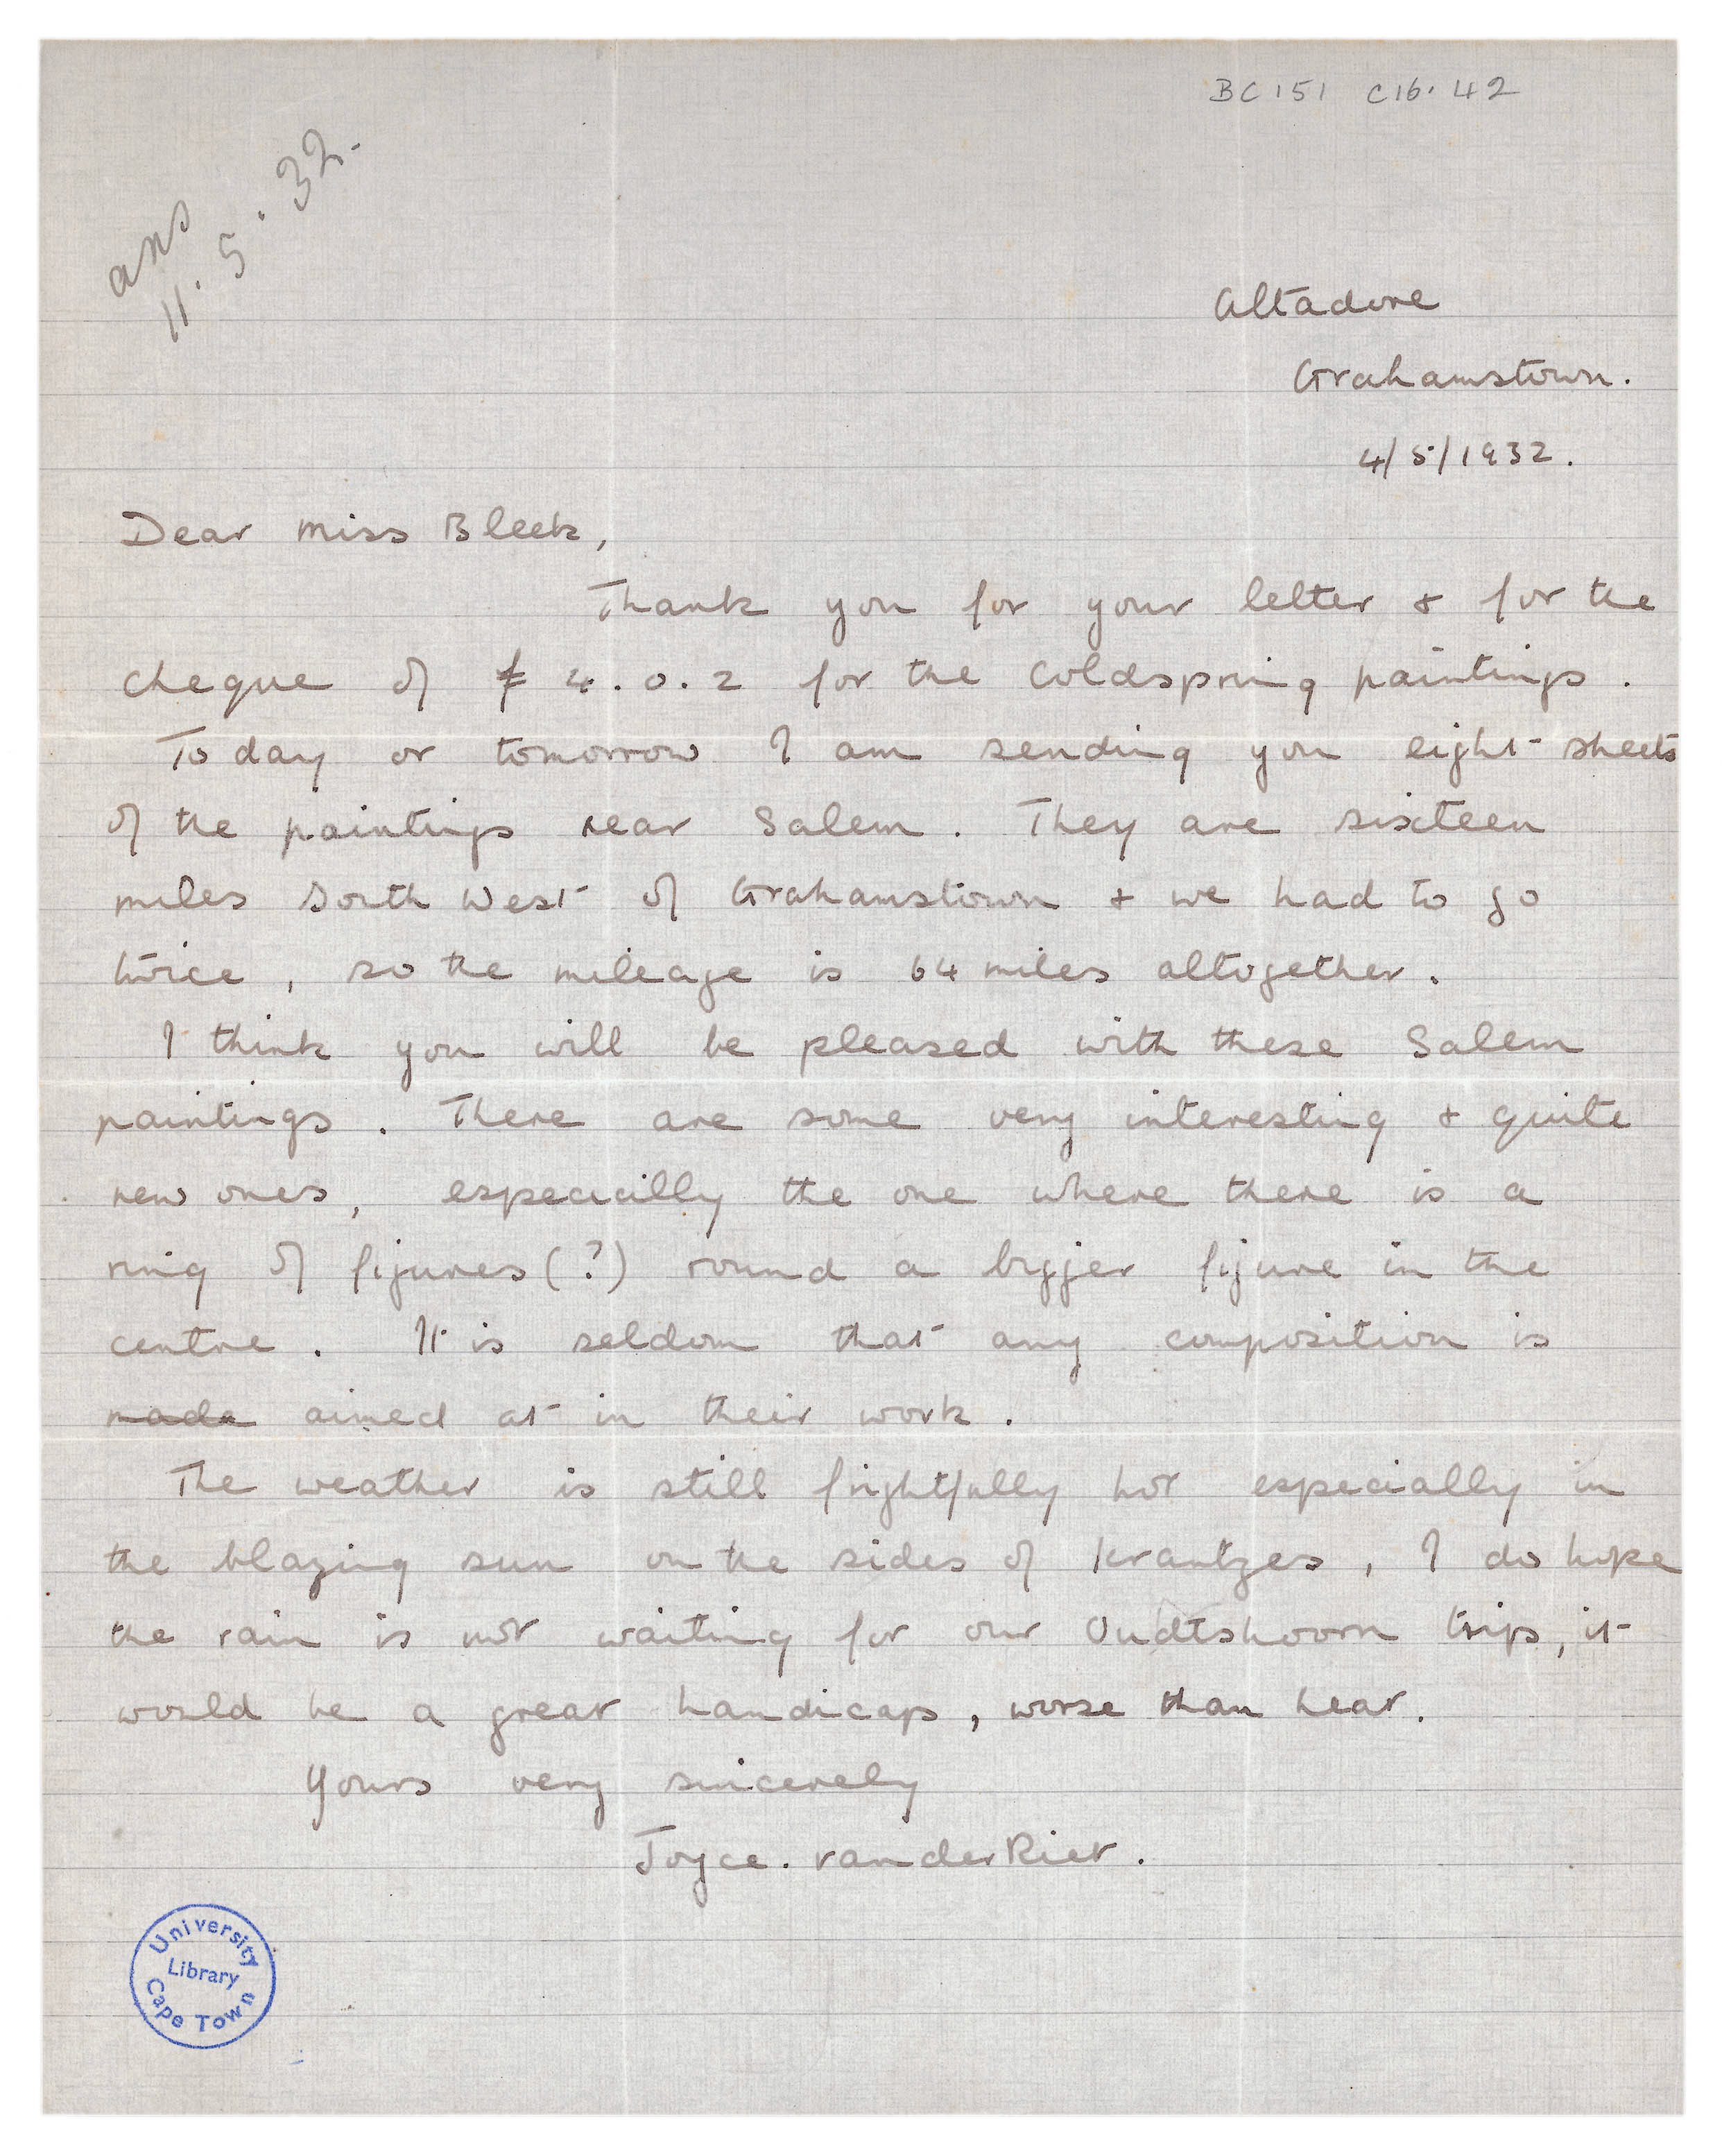 BC 151 C16.42
ans
11.5.32.
Altadore
Grahamstown.
4/5/1932.
Dear Miss Bleek,
Thank you for your letter & for the
cheque of £ 4.0.2 for the Coldspring paintings.
To day or tomorrow I am sending you eight sheets
of the paintings near Salem. They are sixteen
miles South West of Grahamstown & we had to go
twice, so the mileage is 64 miles altogether.
I think you will be pleased with these Salem
paintings. There are some very interesting & quite
new ones, especially the one where there is a
ring of figures (?) round a bigger figure in the
centre. It is seldom that any composition is
made aimed at in their work.
The weather is still frightfully hot especially in
the blazing sun on the sides of krantzes, I do hope
the rain is not waiting for our Oudtshoorn trip, it
would be a great handicap, worse than heat.
Yours very sincerely
Joyce. van der Riet.
University
Library
Cape Town